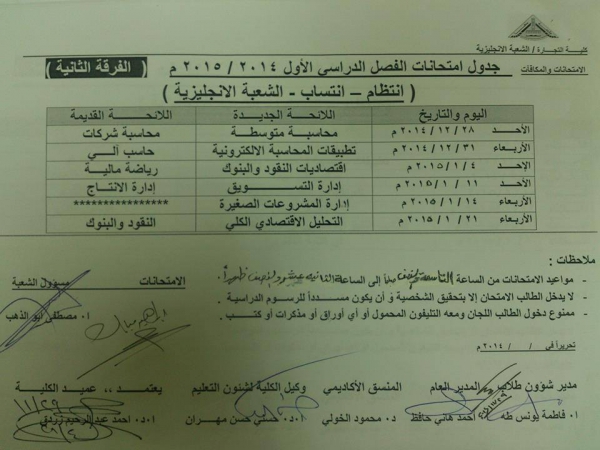 كلية التجارة / الشعبة الانجليزية
الامتحانات والمكافات
جدول امتحانات الفصل الدراسي الأول ٢٠١٤ / ٢٠١٥ م ( الفرقة الثانية )
( انتظام – انتساب - الشعبة الانجليزية )
اليوم والتاريخ اللائحة الجديدة اللائحة القديمة
الأحد ٢٨ / ١٢ / ٢٠١٤ م محاسبة متوسطة محاسبة شركات
الأربعاء ٣١ / ١٢ / ٢٠١٤ م تطبيقات المحاسبة الالكترونية حاسب آلي
الأحد ٤ / ١ / ٢٠١٥ م اقتصاديات النقود والبنوك رياضة مالية
الأحد ١١ / ١ / ٢٠١٥ م إدارة التسويق إدارة الانتاج
الأربعاء ١٤ / ١ / ٢٠١٥ م إدارة المشروعات الصغيرة ****************
الأربعاء ٢١ / ١ / ٢٠١٥ م التحليل الاقتصادي الكلي النقود والبنوك
ملاحظات :
- مواعيد الامتحانات من الساعة التاسعة والنصف صباحا إلى الساعة الثانية عشر والنصف ظهراً.
- لا يدخل الطالب الامتحان إلا بتحقيق الشخصية و أن يكون مسدداً للرسوم الدراسية .
- ممنوع دخول الطالب اللجان ومعه التليفون المحمول أو أي أوراق أو مذكرات أو كتب .
الامتحانات مسؤول الشعبة
ا٠ مصطفى ابو الدهب
تحريراً في / / ٢٠١٤ م
مدير شؤون طلاب المدير العام المنسق الأكاديمي وكيل الكلية لشئون التعليم يعتمد ،، عميد الكلية
ا٠ فاطمة يونس طه ا٠ احمد هاني حافظ د٠ محمود الخولي ا٠د٠ حسني حسن مهران ا٠د٠ احمد عبد الرحيم زردق